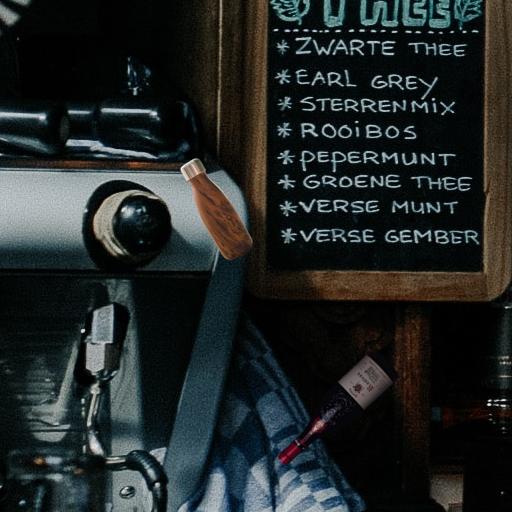 THEE
* ZWARTE THEE
* EARL GREY
* STERRENMIX
* ROOIBOS
* PEPERMUNT
* GROENE THEE
* VERSE MUNT
* VERSE GEMBER